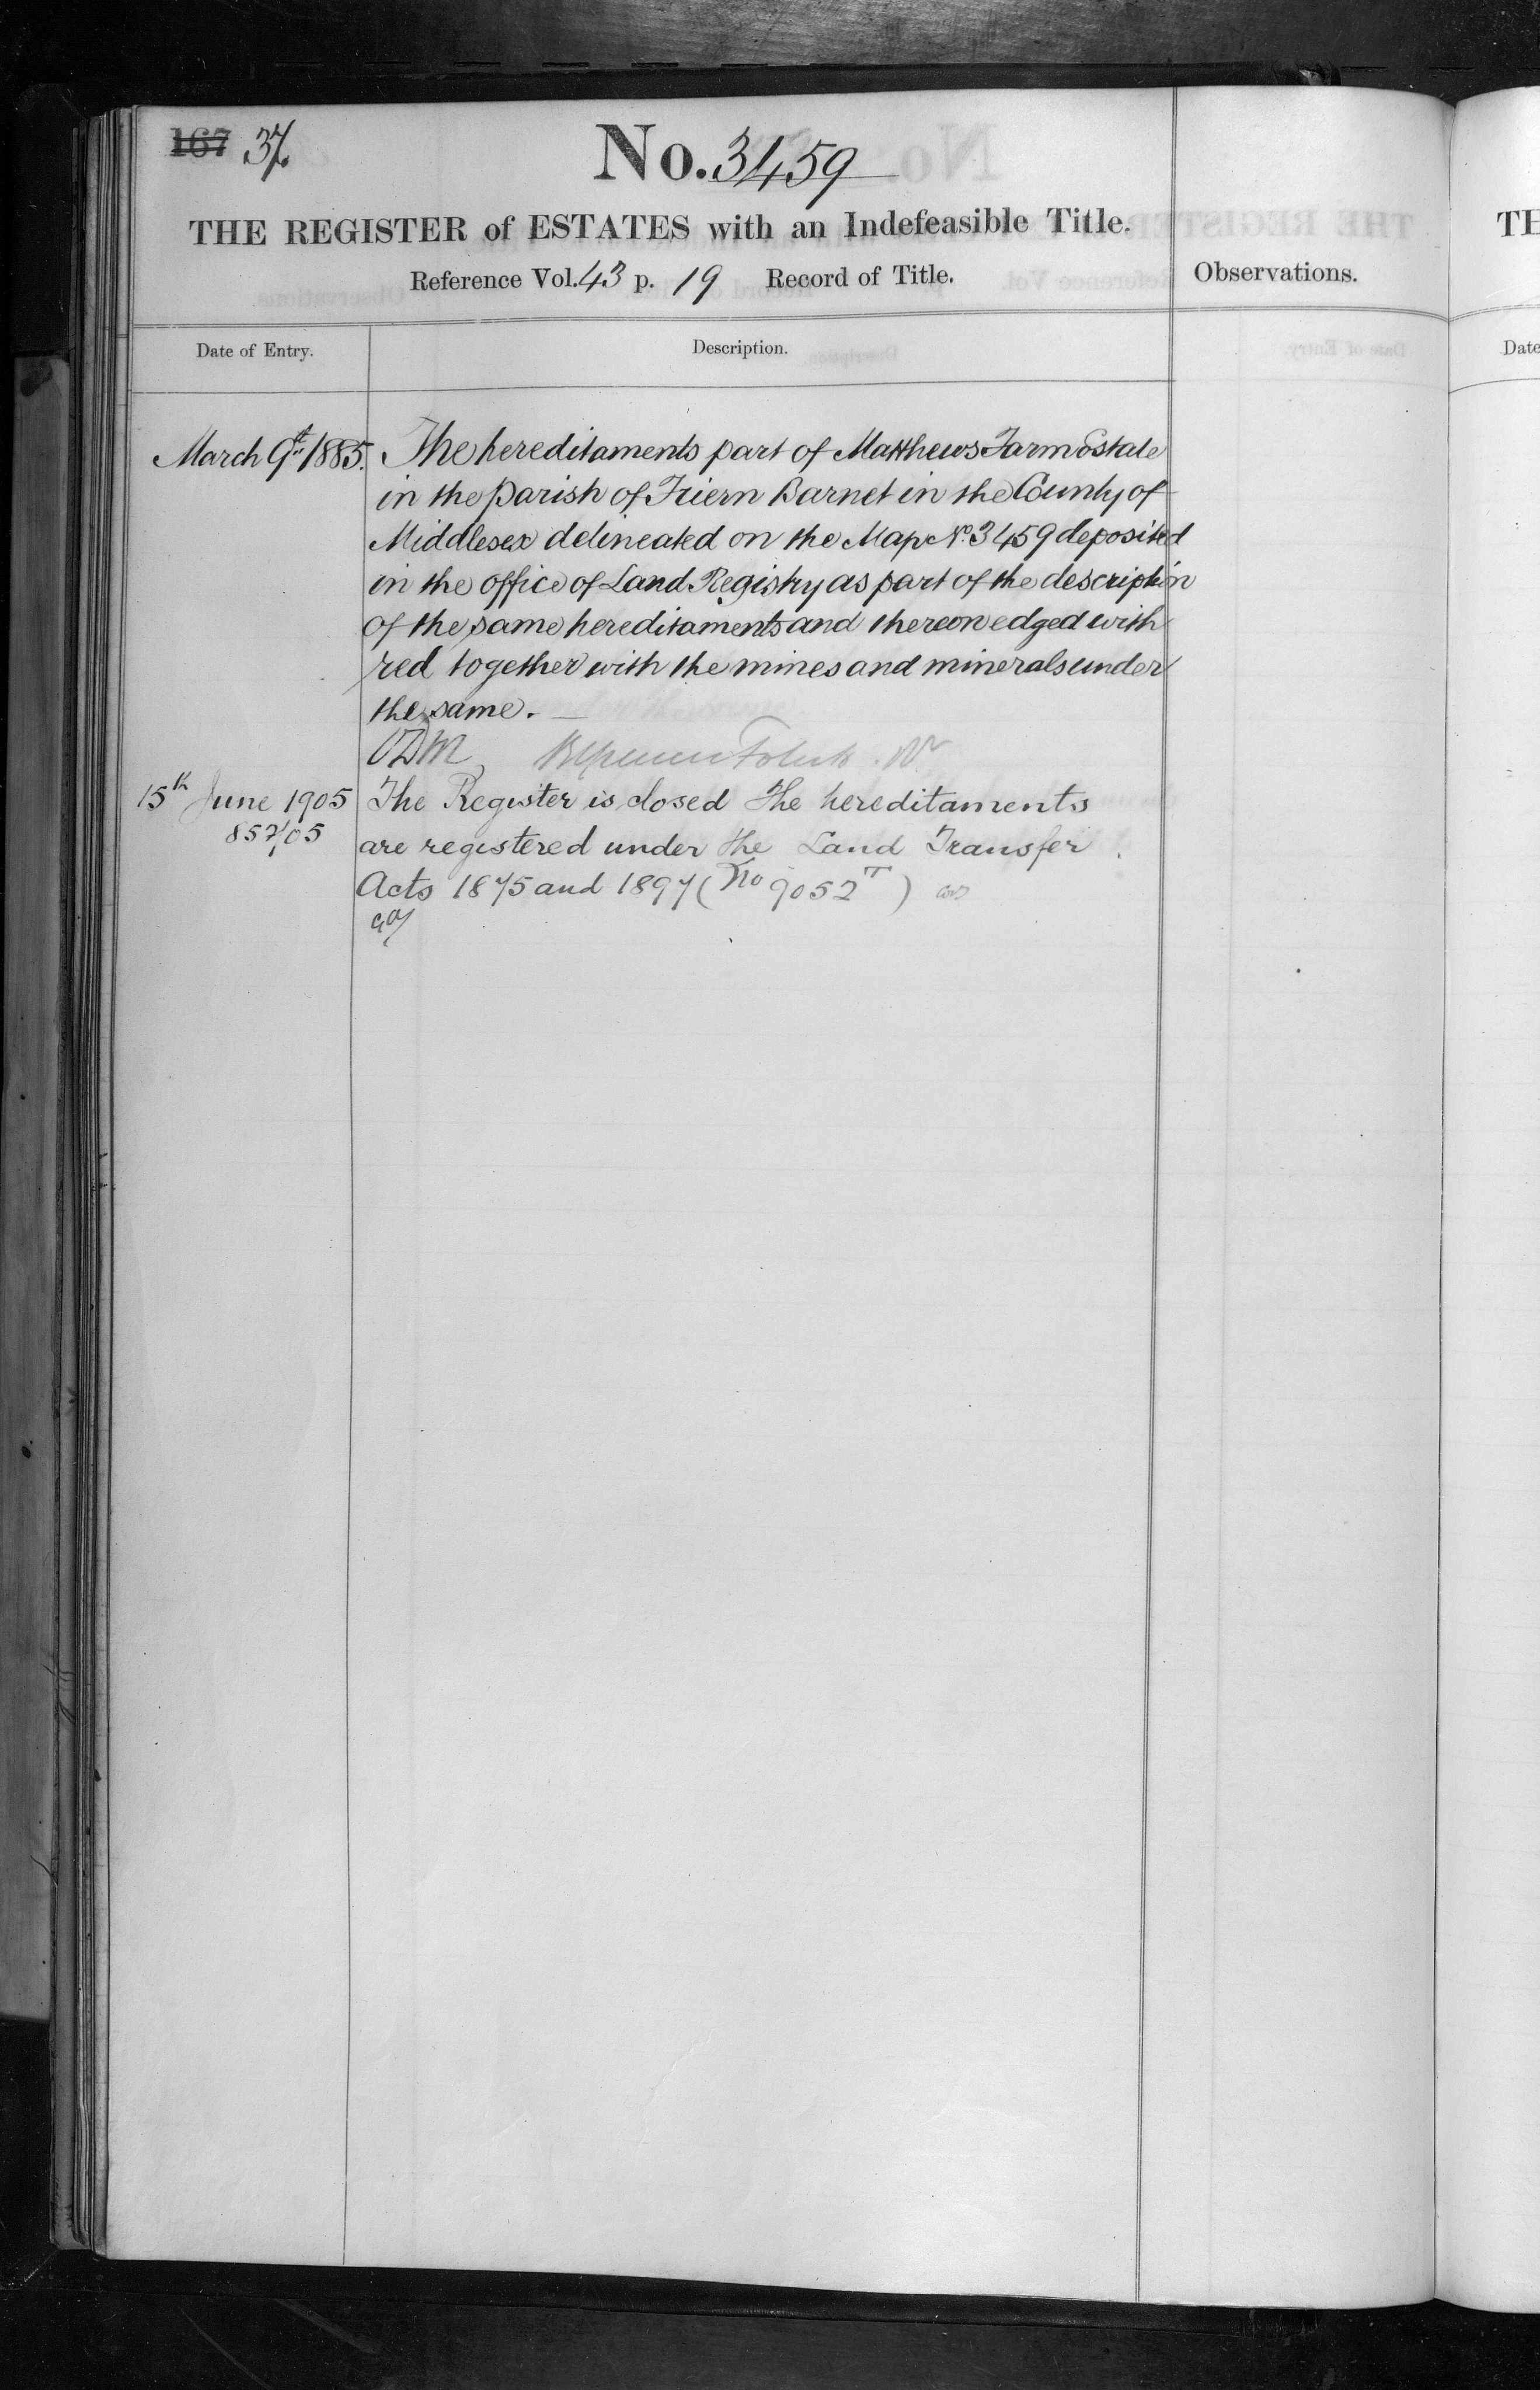 167 37
No. 3459
THE REGISTER of ESTATES with an Indefeasible Title.
Reference Vol. 43 p. 19 Record of Title.
Observations.
Date of Entry.
Description.
March 9th 1885.
The hereditaments part of Matthews Farm Estate
in the parish of Friern Barnet in the County of
Middlesex delineated on the Map No. 3459 deposited
in the office of Land Registry as part of the description
of the same hereditaments and thereon edged with
red together with the mines and minerals under
the same.
15th June 1905
857/05
The Register is closed The hereditaments
are registered under the Land Transfer
Acts 1875 and 1897 (No 9052 T)
TH
Date